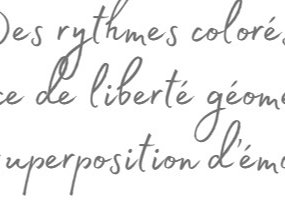 Des rythmes colorés
ce de liberté géomé
superposition d'émo